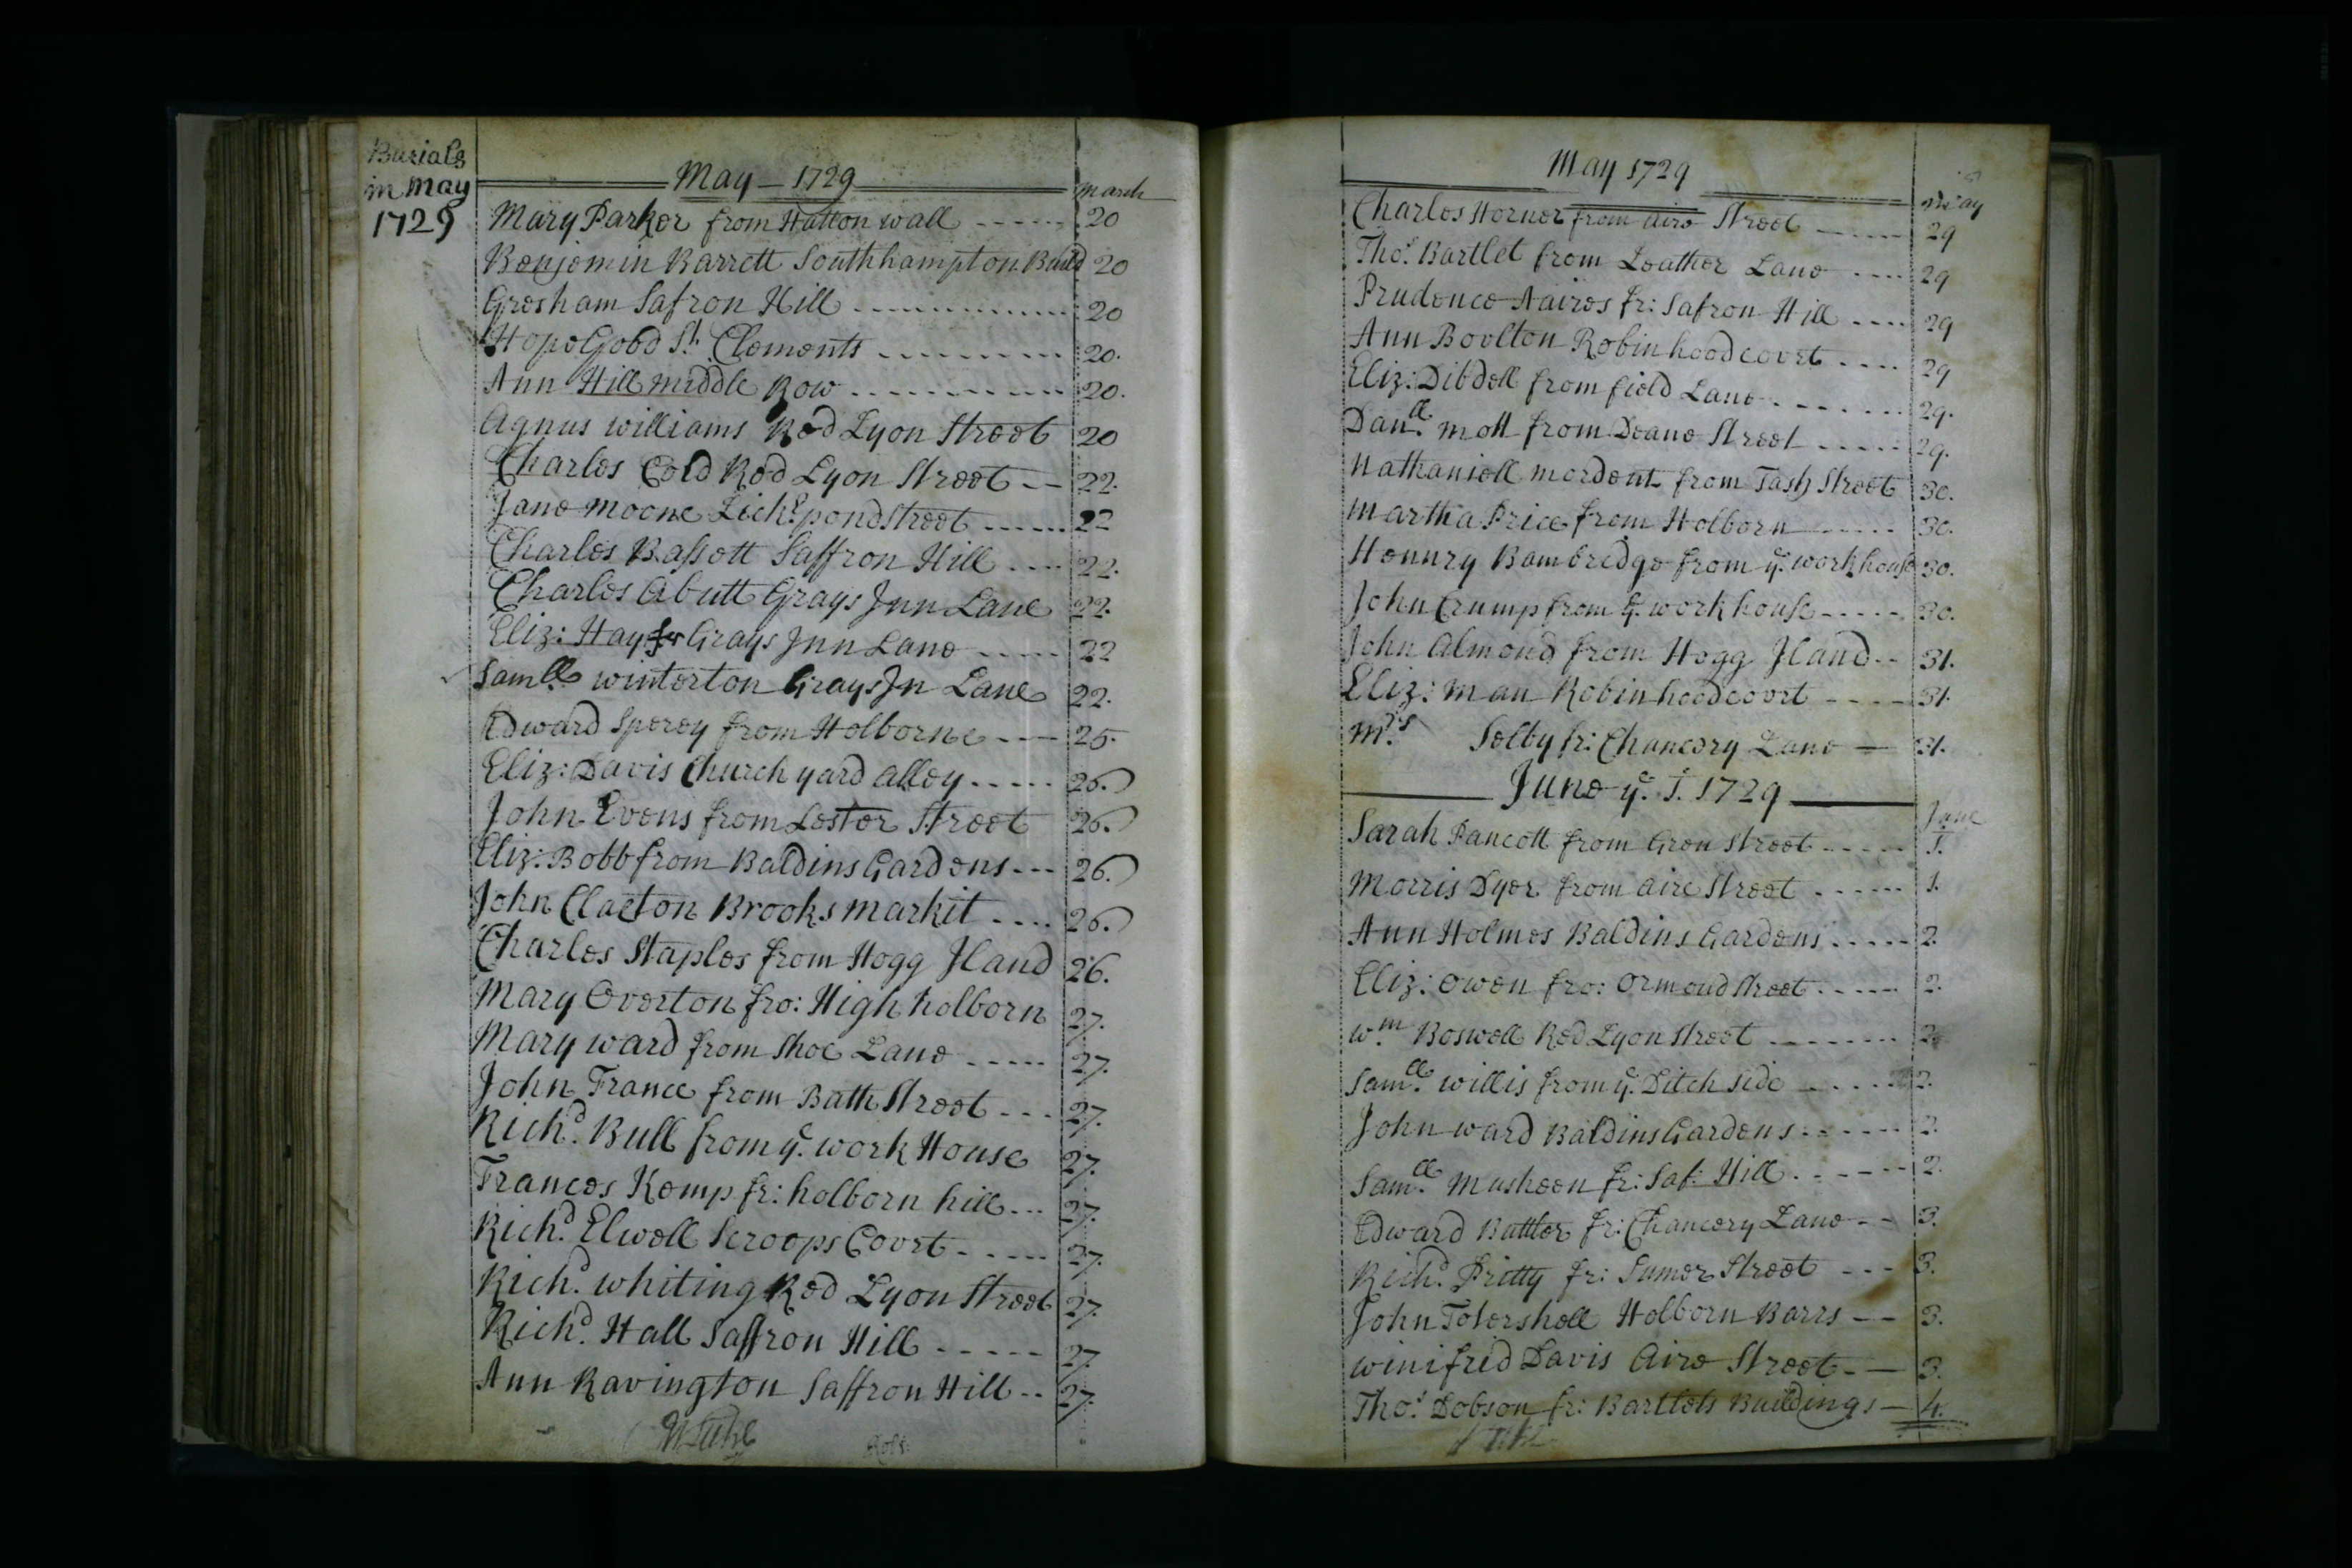 Burials
in May
1729
May - 1729
March
Mary Parker from Hatton wall ------ 20
Benjemin Barrett Southhampton Build 20
Gresham Safron Hill ------------- 20
Hope Good St. Clements --------- 20.
Ann Hill middle Row ---------- 20.
Agnus williams Red Lyon Street 20
Charles Cold Red Lyon Street -- 22.
Jane moone Lichd. pond street ------ 22
Charles Bassett Saffron Hill ---- 22.
Charles Abutt Grays Inn Lane 22.
Eliz: Hay fr Grays Inn Lane ----- 22
Samll. winterton Grays In Lane 22.
Edward Sperey from Holborne --- 25.
Eliz: Davis Church yard alley ----- 26.
John Evens from Lester Street 26.
Eliz: Bobb from Baldins Gardens --- 26.
John Claeton Brooks markit ---- 26.
Charles Staples from Hogg Iland 26.
Mary Overton fro: High holborn 27.
Mary ward from Shoe Lane ----- 27.
John France from Bath Street --- 27.
Richd. Bull from ye. work House 27.
Frances Kemp fr: holborn hill --- 27.
Richd. Elwell Scroops Covrt ----- 27.
Richd. whiting Red Lyon Street 27.
Richd. Hall Saffron Hill ----- 27.
Ann Ravington Saffron Hill -- 27.
May 1729
May
Charles Horner from Aire Street ----- 29
Thos. Bartlet from Leather Lane ---- 29
Prudence Naires fr: Safron Hill ---- 29
Ann Bovlton Robinhood covrt ---- 29
Eliz: Dibdell from field Lane ------- 29.
Danll. mott from Deane Street ----- 29.
Nathaniell mordent from Tash Street 30.
Martha Price from Holborn ----- 30.
Hennry Bambredge from ye. workhouse 30.
John Crump from ye. work house ----- 30.
John Almond from Hogg Iland -- 31.
Eliz: man Robinhood covrt ---- 31.
Mrs. Selby fr: Chancery Lane - 31.
June ye. 1. 1729
June
Sarah Pancott from Gren Street ----- 1.
Morris Dyer from Aire Street ------ 1.
Ann Holmes Baldins Gardens ----- 2.
Eliz: Owen fro: Ormond Street ----- 2.
Wm. Boswell Red Lyon Street -------- 2.
Samll. willis from ye. Ditch Side ----- 2.
John ward Baldins Gardens ------ 2.
Samll. Musheen fr: Saf: Hill ------ 2.
Edward Battler fr: Chancery Lane -- 3.
Richd. Pritty fr: Sumer Street --- 3.
John Tolershell Holborn Barrs -- 3.
winifred Davis Aire Street -- 3.
Thos. Dobson fr: Bartlets Buildings - 4.